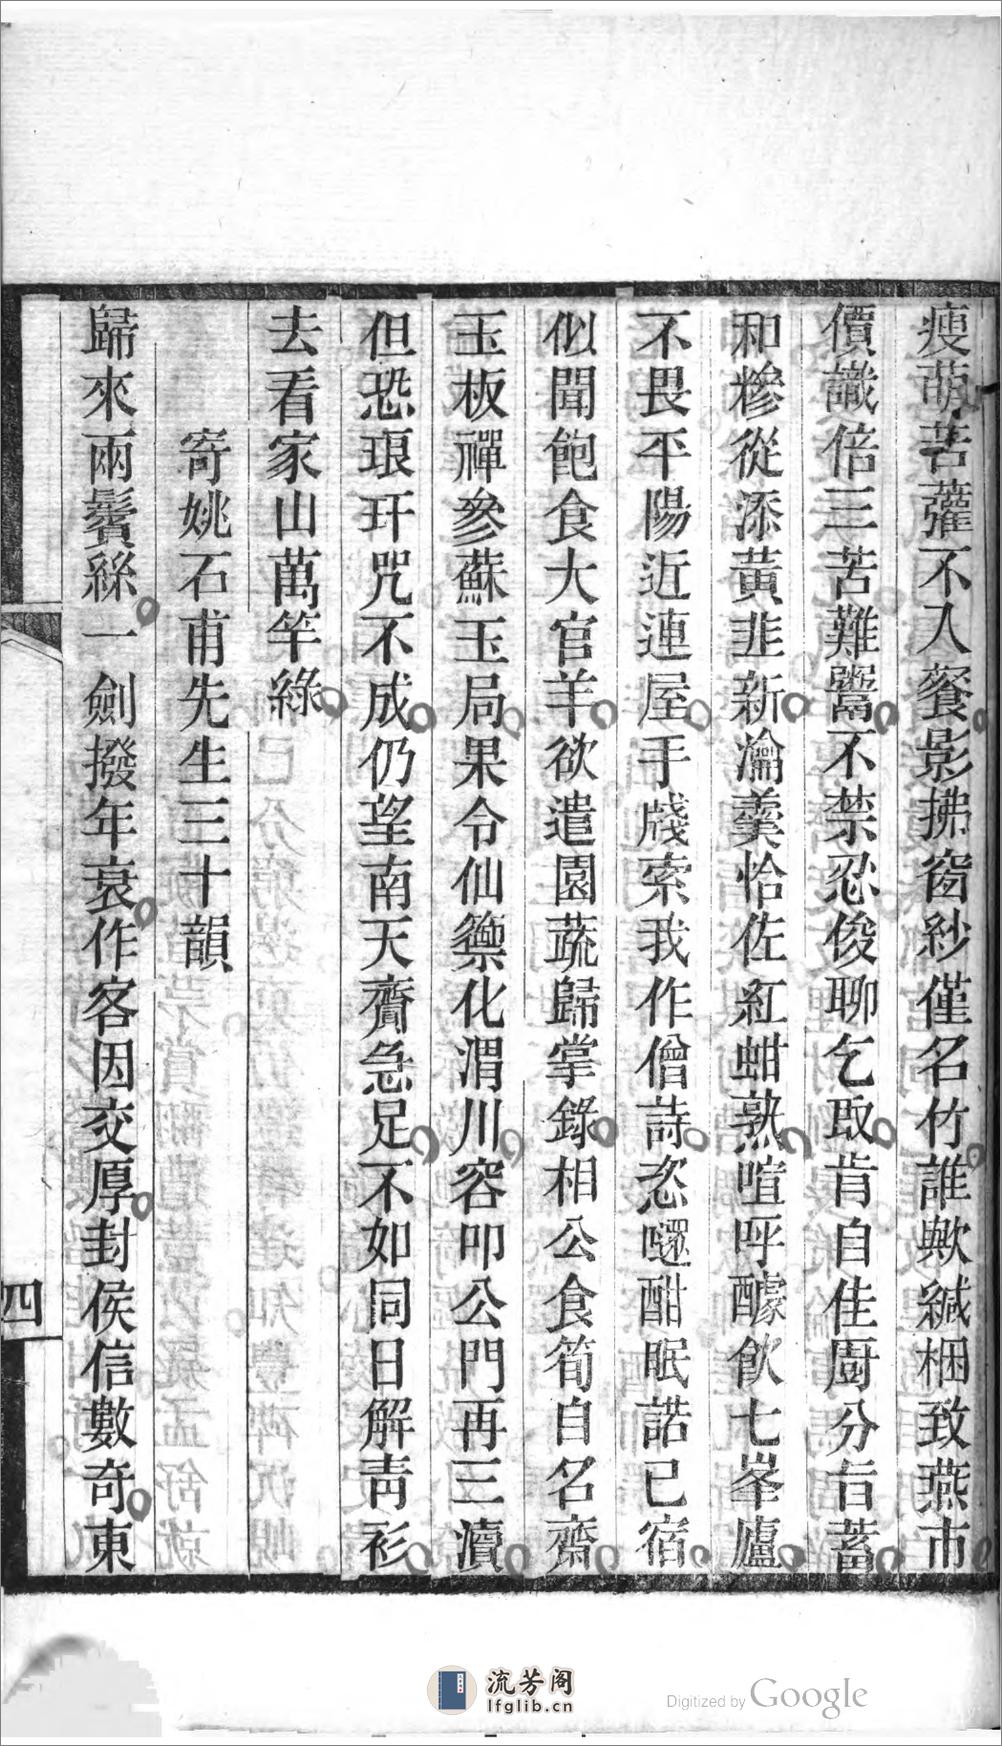 瘦萌苦蘿不入餐影拂窗紗僅名竹誰歟緘梱致燕市
價識倍三苦難鬻不禁忍俊聊乞取肯自佳廚分旨蓄
和糝從添黃韭新瀹羹恰佐紅蚶熟喧呼醵飲七峯廬
不畏平陽近連屋手牋索我作僧詩恣嚃酣眠諾已宿
似聞飽食大官羊欲遣園蔬歸掌錄相公食筍自名齋
玉板禪參蘇玉局果令仙籞化渭川容叩公門再三瀆
但恐琅玕咒不成仍望南天齎急足不如同日解靑衫
去看家山萬竿綠
寄姚石甫先生三十韻
歸來兩鬢絲一劍撥年衰作客因交厚封侯信數奇東
四
流芳阁
lfglib.cn
Digitized by Google